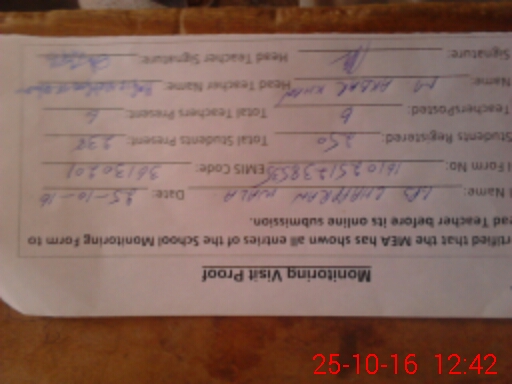 Monitoring Visit Proof
rtified that the MEA has shown all entries of the School Monitoring Form to
ead Teacher before its online submission.
Name: GPS CHAPPRAN WALA Date: 25-10-16
Form No: EMIS Code: 36130201
Students Registered: 250 Total Students Present: 238
TeachersPosted: 6 Total Teachers Present: 6
Name: M AKBAR KHAN Head Teacher Name:
Signature: Head Teacher Signature:
25-10-16 12:42